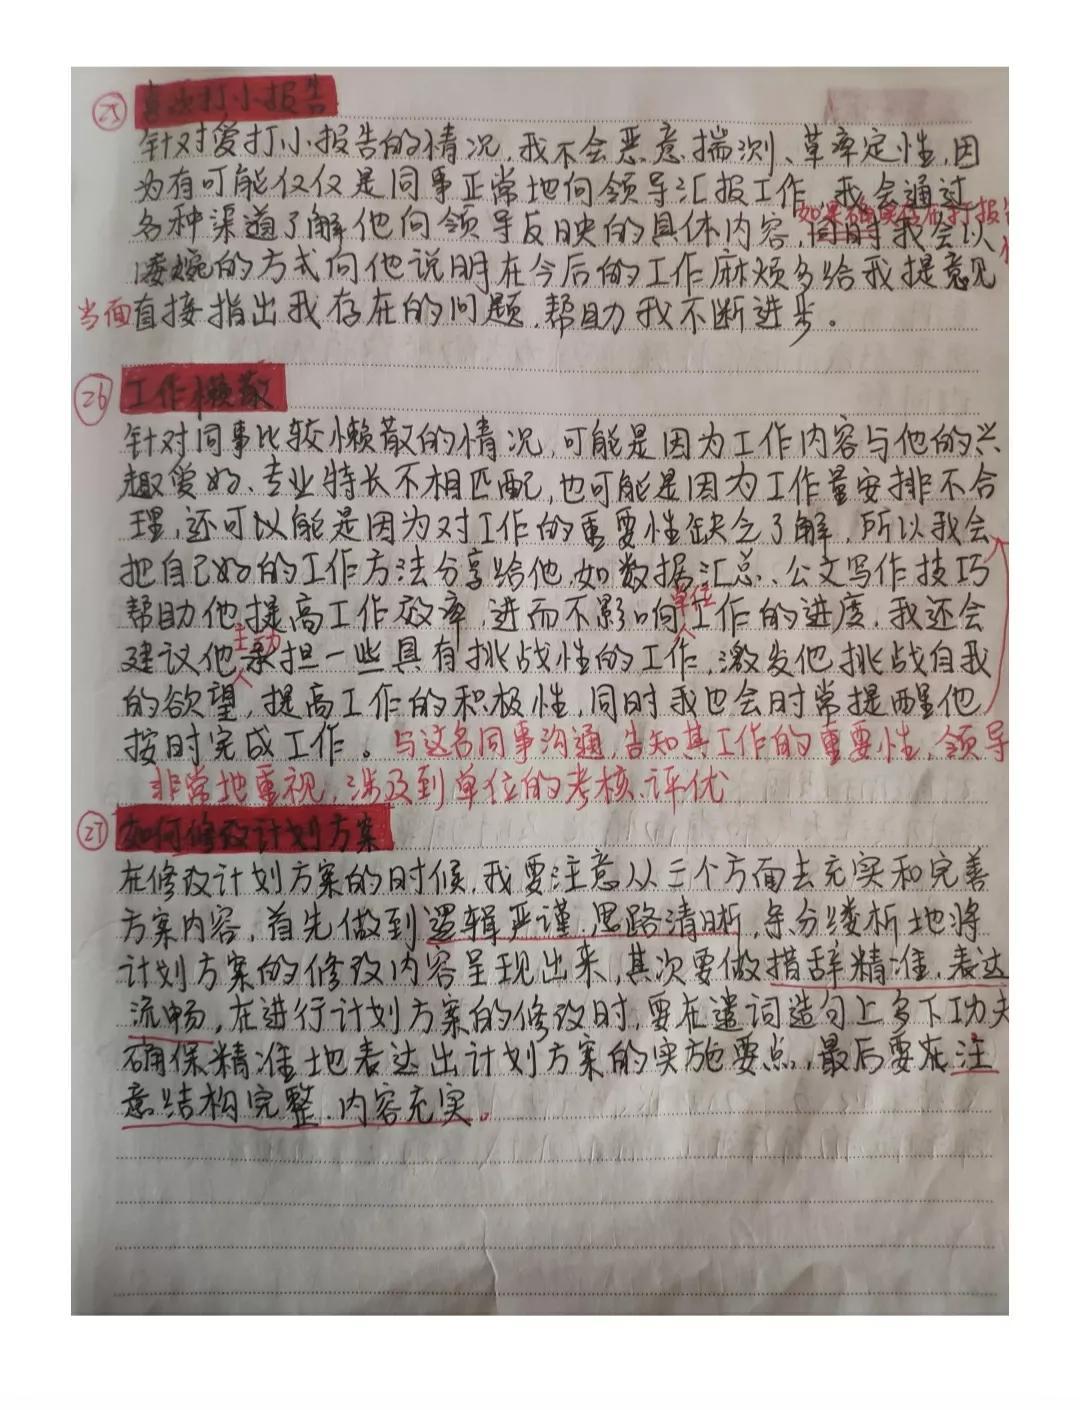 ㉕ 喜欢打小报告
针对爱打小报告的情况,我不会恶意揣测、草率定性,因
为有可能仅仅是同事正常地向领导汇报工作,我会通过
如果确实存在打报告
各种渠道了解他向领导反映的具体内容,同时我会以
凄婉的方式向他说明在今后的工作麻烦多给我提意见
当面直接指出我存在的问题,帮助我不断进步。
㉖ 工作懒散
针对同事比较懒散的情况,可能是因为工作内容与他的兴
趣爱好、专业特长不相匹配,也可能是因为工作量安排不合
理,还可以能是因为对工作的重要性缺乏了解,所以我会
把自己好的工作方法分享给他,如数据汇总、公文写作技巧
单位
帮助他提高工作效率,进而不影响工作的进度,我还会
主动
建议他承担一些具有挑战性的工作,激发他挑战自我
的欲望,提高工作的积极性,同时我也会时常提醒他
按时完成工作。与这名同事沟通,告知其工作的重要性,领导
非常地重视,涉及到单位的考核、评优
㉗ 如何修改计划方案
在修改计划方案的时候,我要注意从三个方面去充实和完善
方案内容,首先做到逻辑严谨、思路清晰,条分缕析地将
计划方案的修改内容呈现出来,其次要做措辞精准、表达
流畅,在进行计划方案的修改时,要在遣词造句上多下功夫
确保精准地表达出计划方案的实施要点,最后要在注
意结构完整、内容充实。